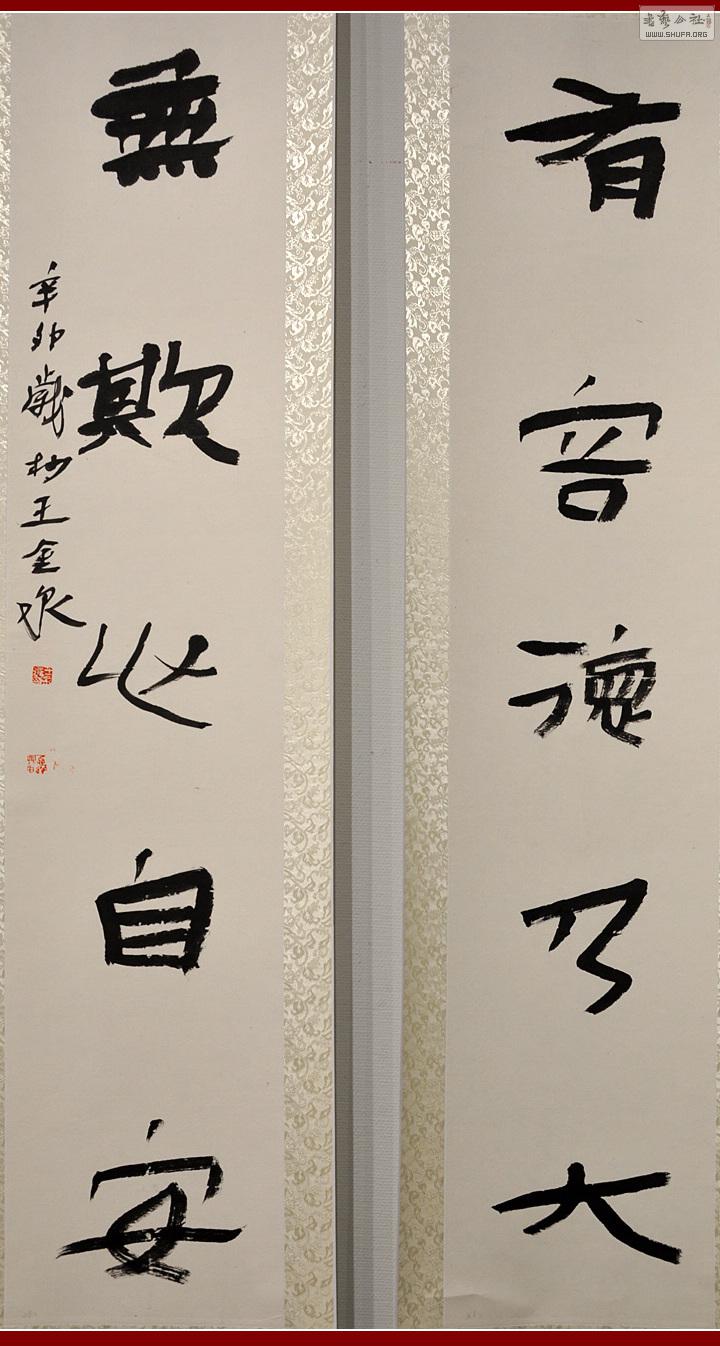 有容德乃大
無欺心自安
辛卯歲杪王金泉
书艺公社
WWW.SHUFA.ORG